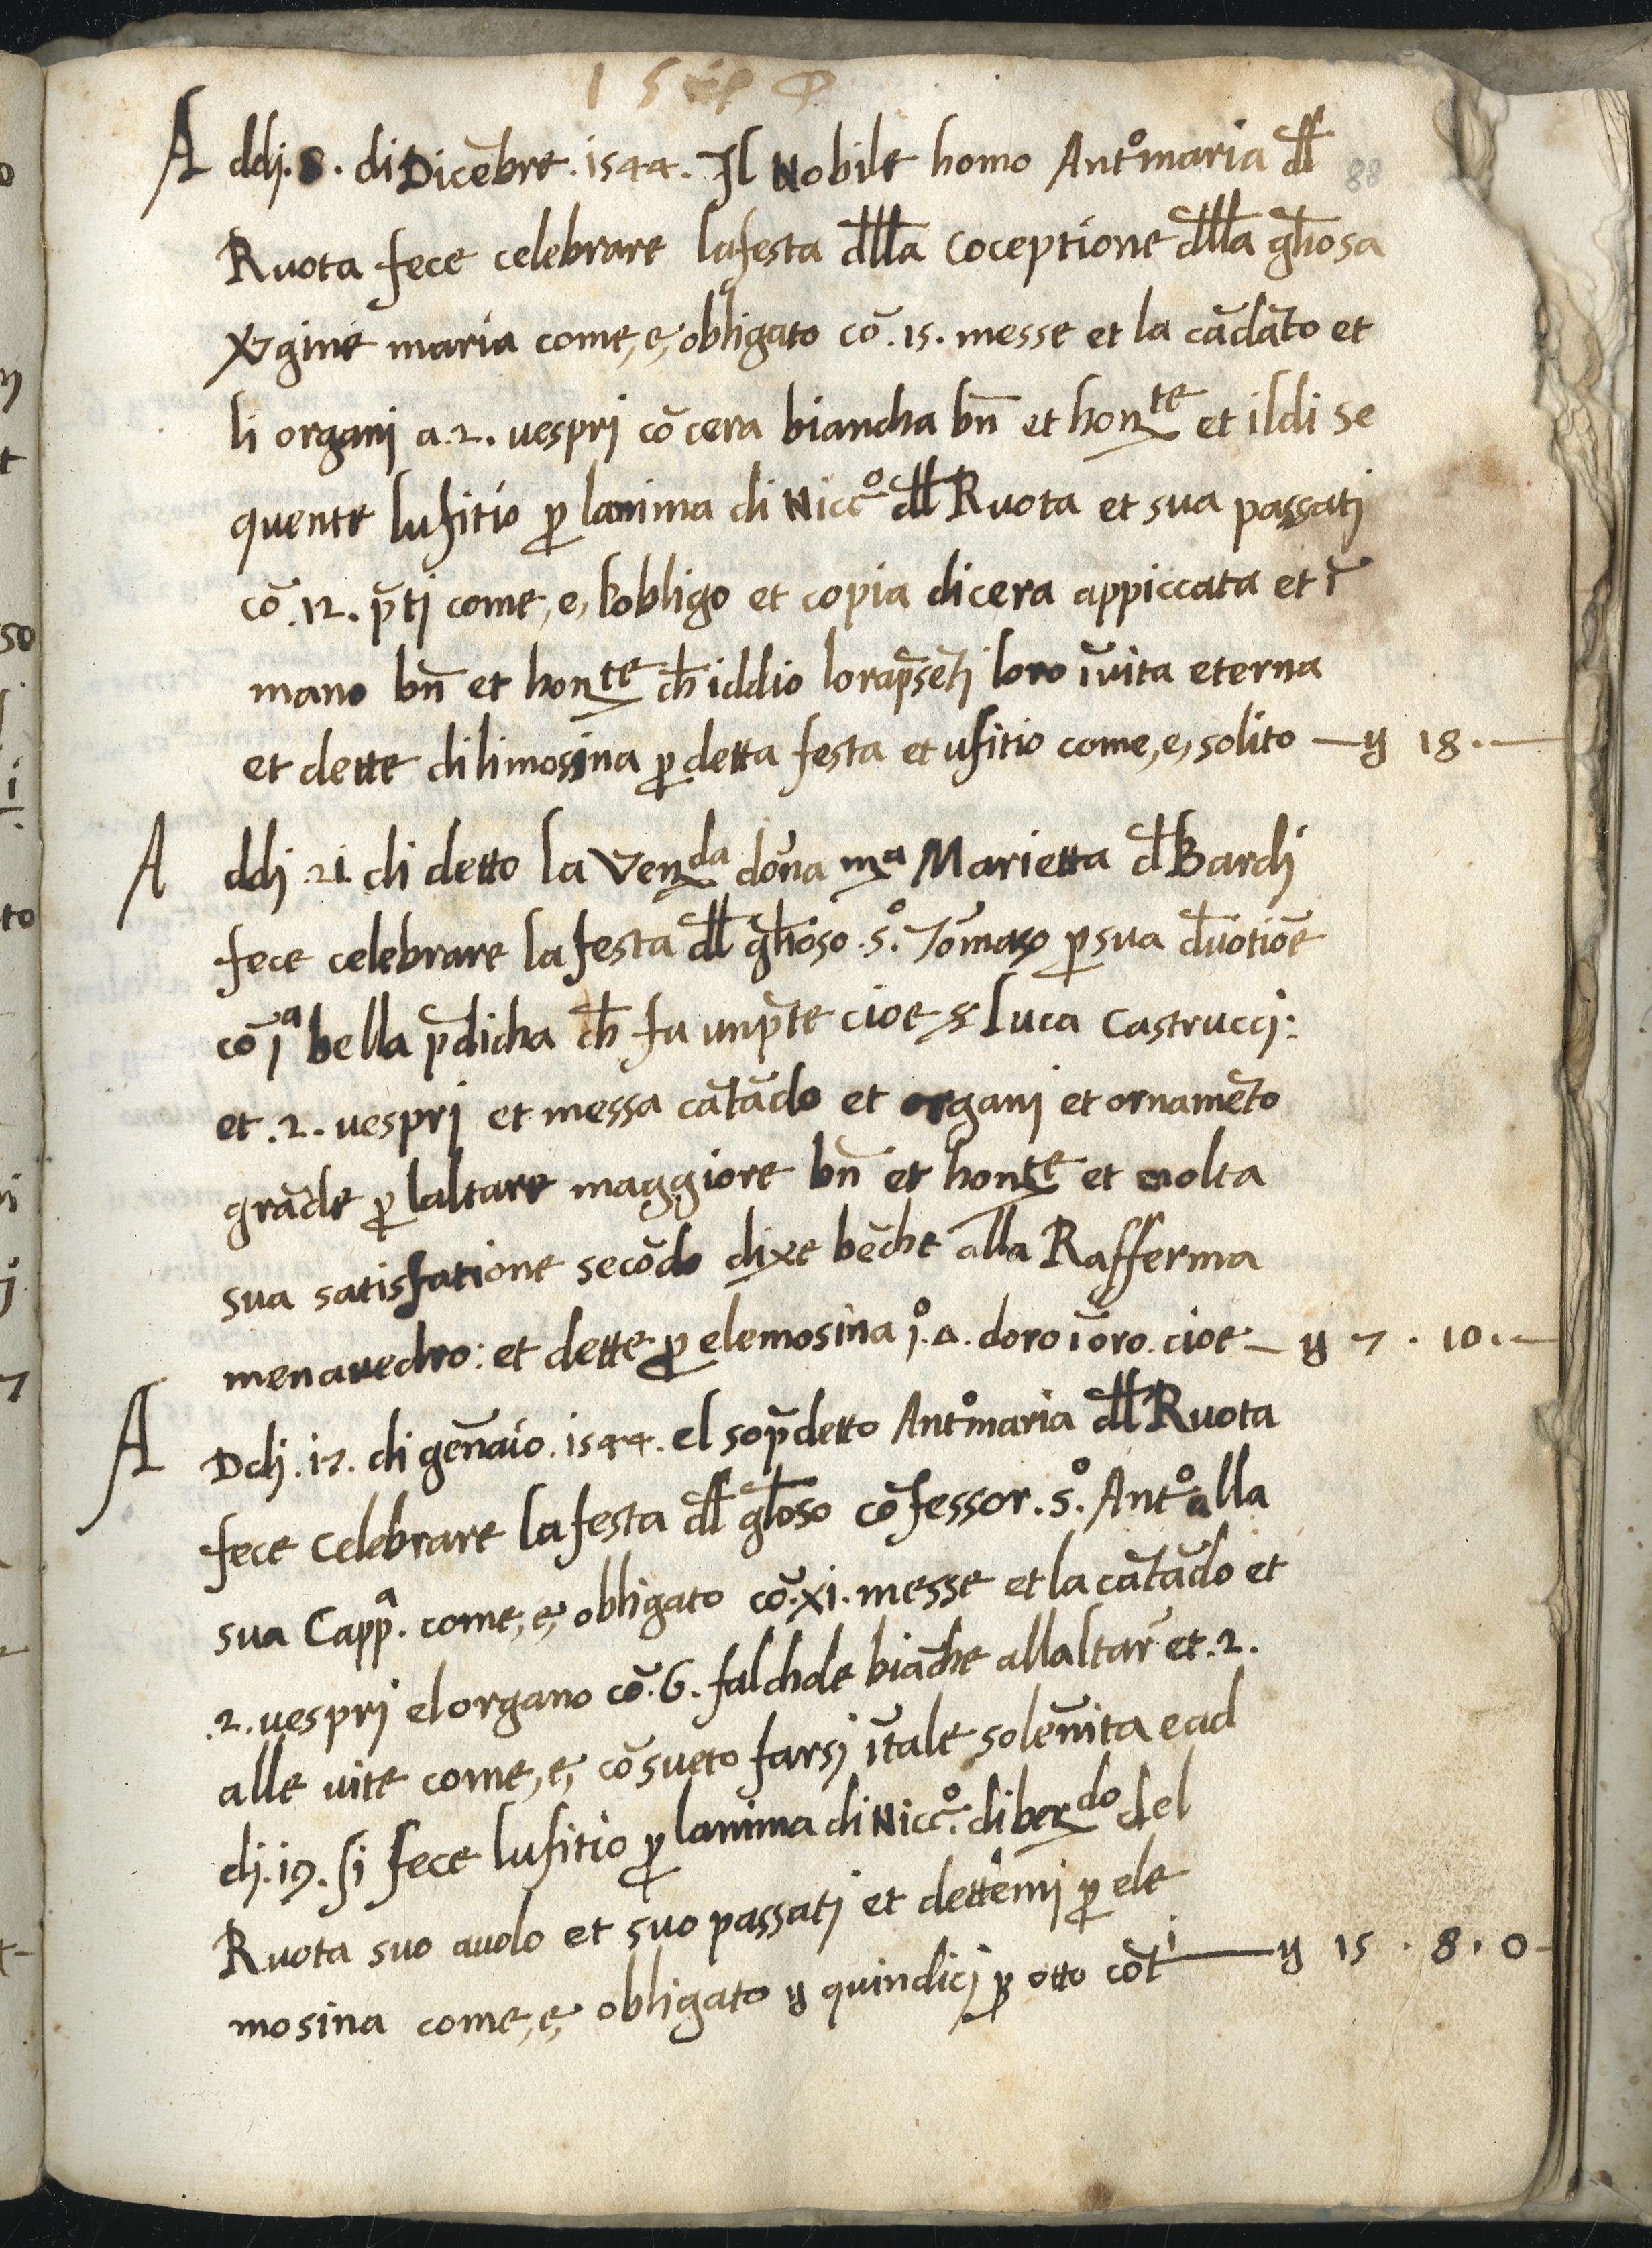 Addj. 8. di Dicēbre. 1544. Il Nobile homo Antº maria dłł
88
Ruota fece celebrare la festa dłła Cōceptione dłła għosa
Vgine maria come, e, obligato cō. 15. messe et la cādāto et
li organj a. 2. uesprj cō cera biancha bn̄ et honte et il di se
quente lufitio p lanima di Niccº dłł Ruota et sua passatj
cō. 12. p̄tj come, e, lobligo et copia di cera appiccata et ī
mano bn̄ et honte cħ iddio lorap̄sētj loro ī uita eterna
et dette di limosina p detta festa et ufitio come, e, solito — ỻ 18. —
Addj 21. di detto la Venda dōna ma Marietta đ Bardj
fece celebrare la festa dłł għoso. sº. Tōmaso p sua đuotiōe
cō ja bella p̄dicha cħ fa un p̄te cioe s Luca Castruccj:
et. 2. uesprj et messa cātādo et organj et ornamēto
grāde p laltare maggiore bn̄ et honte et molta
sua satisfatione secōdo dixe bēche alla Rafferma
menauedro: et dette p elemosina jº. Δ. doro ī oro. cioe — ỻ 7. 10. —
ADdj. 17. di gēnaio. 1544. el sop̄detto Antº maria dłł Ruota
fece celebrare la festa dłł głoso cōfessor. sº. Antº alla
sua Cappa. come, e, obligato cō. xi. messe et la cātādo et
.2. uesprj el organo cō. 6. falchole biāche allaltar̄ et. 2.
alle uite come, e, cōsueto farsj ī tale solēnita e ad
dj. 19. si fece lufitio p lanima di Niccº. di berdo del
Ruota suo auolo et suo passatj et dettemj p ele
mosina come, e, obligato ỻ quindicj p otto cōtj — ỻ 15. 8. 0 -